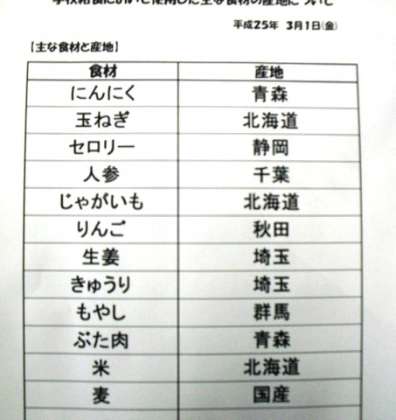 学校給食において使用した主な食材の産地について
平成25年 3月1日(金)
【主な食材と産地】
食材 産地
にんにく 青森
玉ねぎ 北海道
セロリー 静岡
人参 千葉
じゃがいも 北海道
りんご 秋田
生姜 埼玉
きゅうり 埼玉
もやし 群馬
ぶた肉 青森
米 北海道
麦 国産